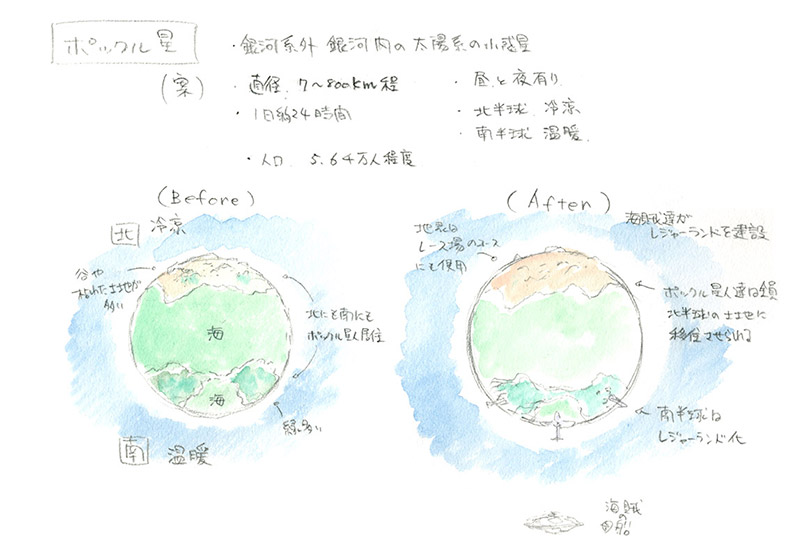 ポックル星
(案)
・銀河系外 銀河内の太陽系の小惑星
・直径 7〜800km程
・1日約24時間
・人口 5、6４万人程度
・昼と夜有り
・北半球 冷涼
・南半球 温暖
(Before)
北 冷涼
谷や
枯れた土地が
多い
海
海
北にも南にも
ポックル星人居住
緑多い
南 温暖
(After)
地表は
レース場のコース
にも使用
海賊達が
レジャーランドを建設
ポックル星人達は
北半球の土地に
移住させられる
南半球は
レジャーランド化
海賊
の
船!